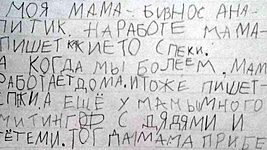 МОЯ МАМА - БИЗНОС АНА-
ЛИТИК. НА РАБОТЕ МАМА
ПИШЕТ КАКИЕТО СПЕКИ.
А КОГДА МЫ БОЛЕЕМ, МАМ
РАБОТАЕТ ДОМА. И ТОЖЕ ПИШЕТ
СПЕКИ. А ЕЩЁ У МАМЫ МНОГО
МИТИНГОВ С ДЯДЯМИ И
ТЁТЕМИ. ТОГДА МАМА ПРИБЕ